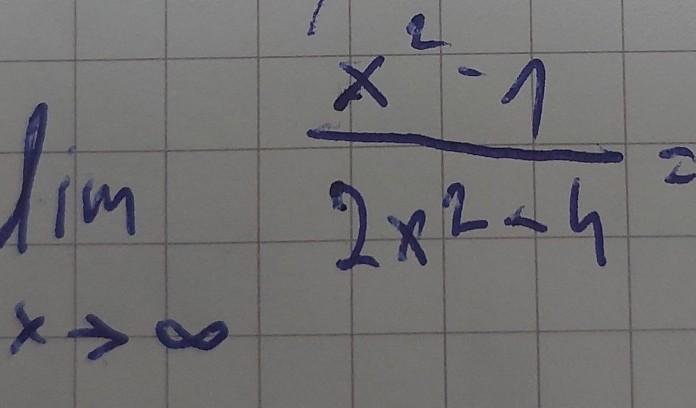 lim x → ∞ (x² - 1) / (2x² - 4) =